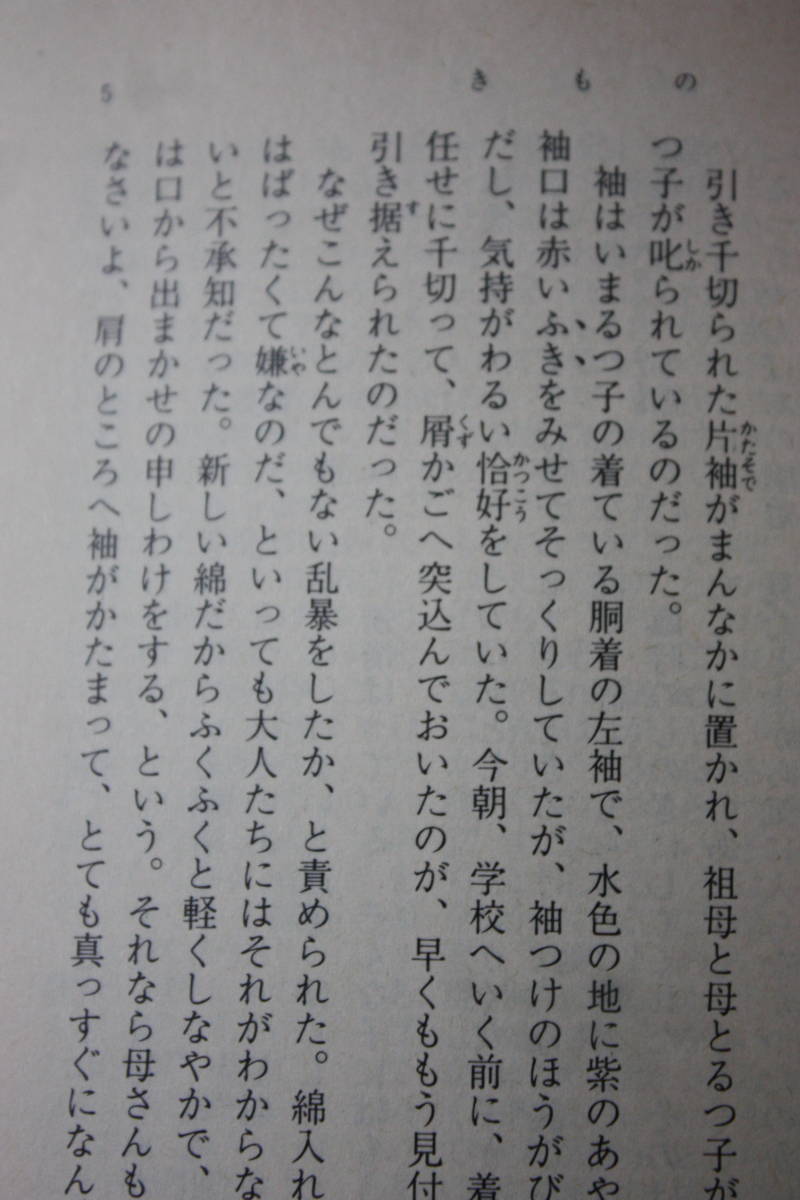 きもの
5
引き千切られた片袖がまんなかに置かれ、祖母と母とるつ子が
つ子が叱られているのだった。
袖はいまるつ子の着ている胴着の左袖で、水色の地に紫のあや
袖口は赤いふきをみせてそっくりしていたが、袖つけのほうがび
だし、気持がわるい恰好をしていた。今朝、学校へいく前に、着
任せに千切って、屑かごへ突込んでおいたのが、早くももう見付
引き据えられたのだった。
なぜこんなとんでもない乱暴をしたか、と責められた。綿入れ
はばったくて嫌なのだ、といっても大人たちにはそれがわからな
いと不承知だった。新しい綿だからふくふくと軽くしなやかで、
は口から出まかせの申しわけをする、という。それなら母さんも
なさいよ、肩のところへ袖がかたまって、とても真っすぐになん